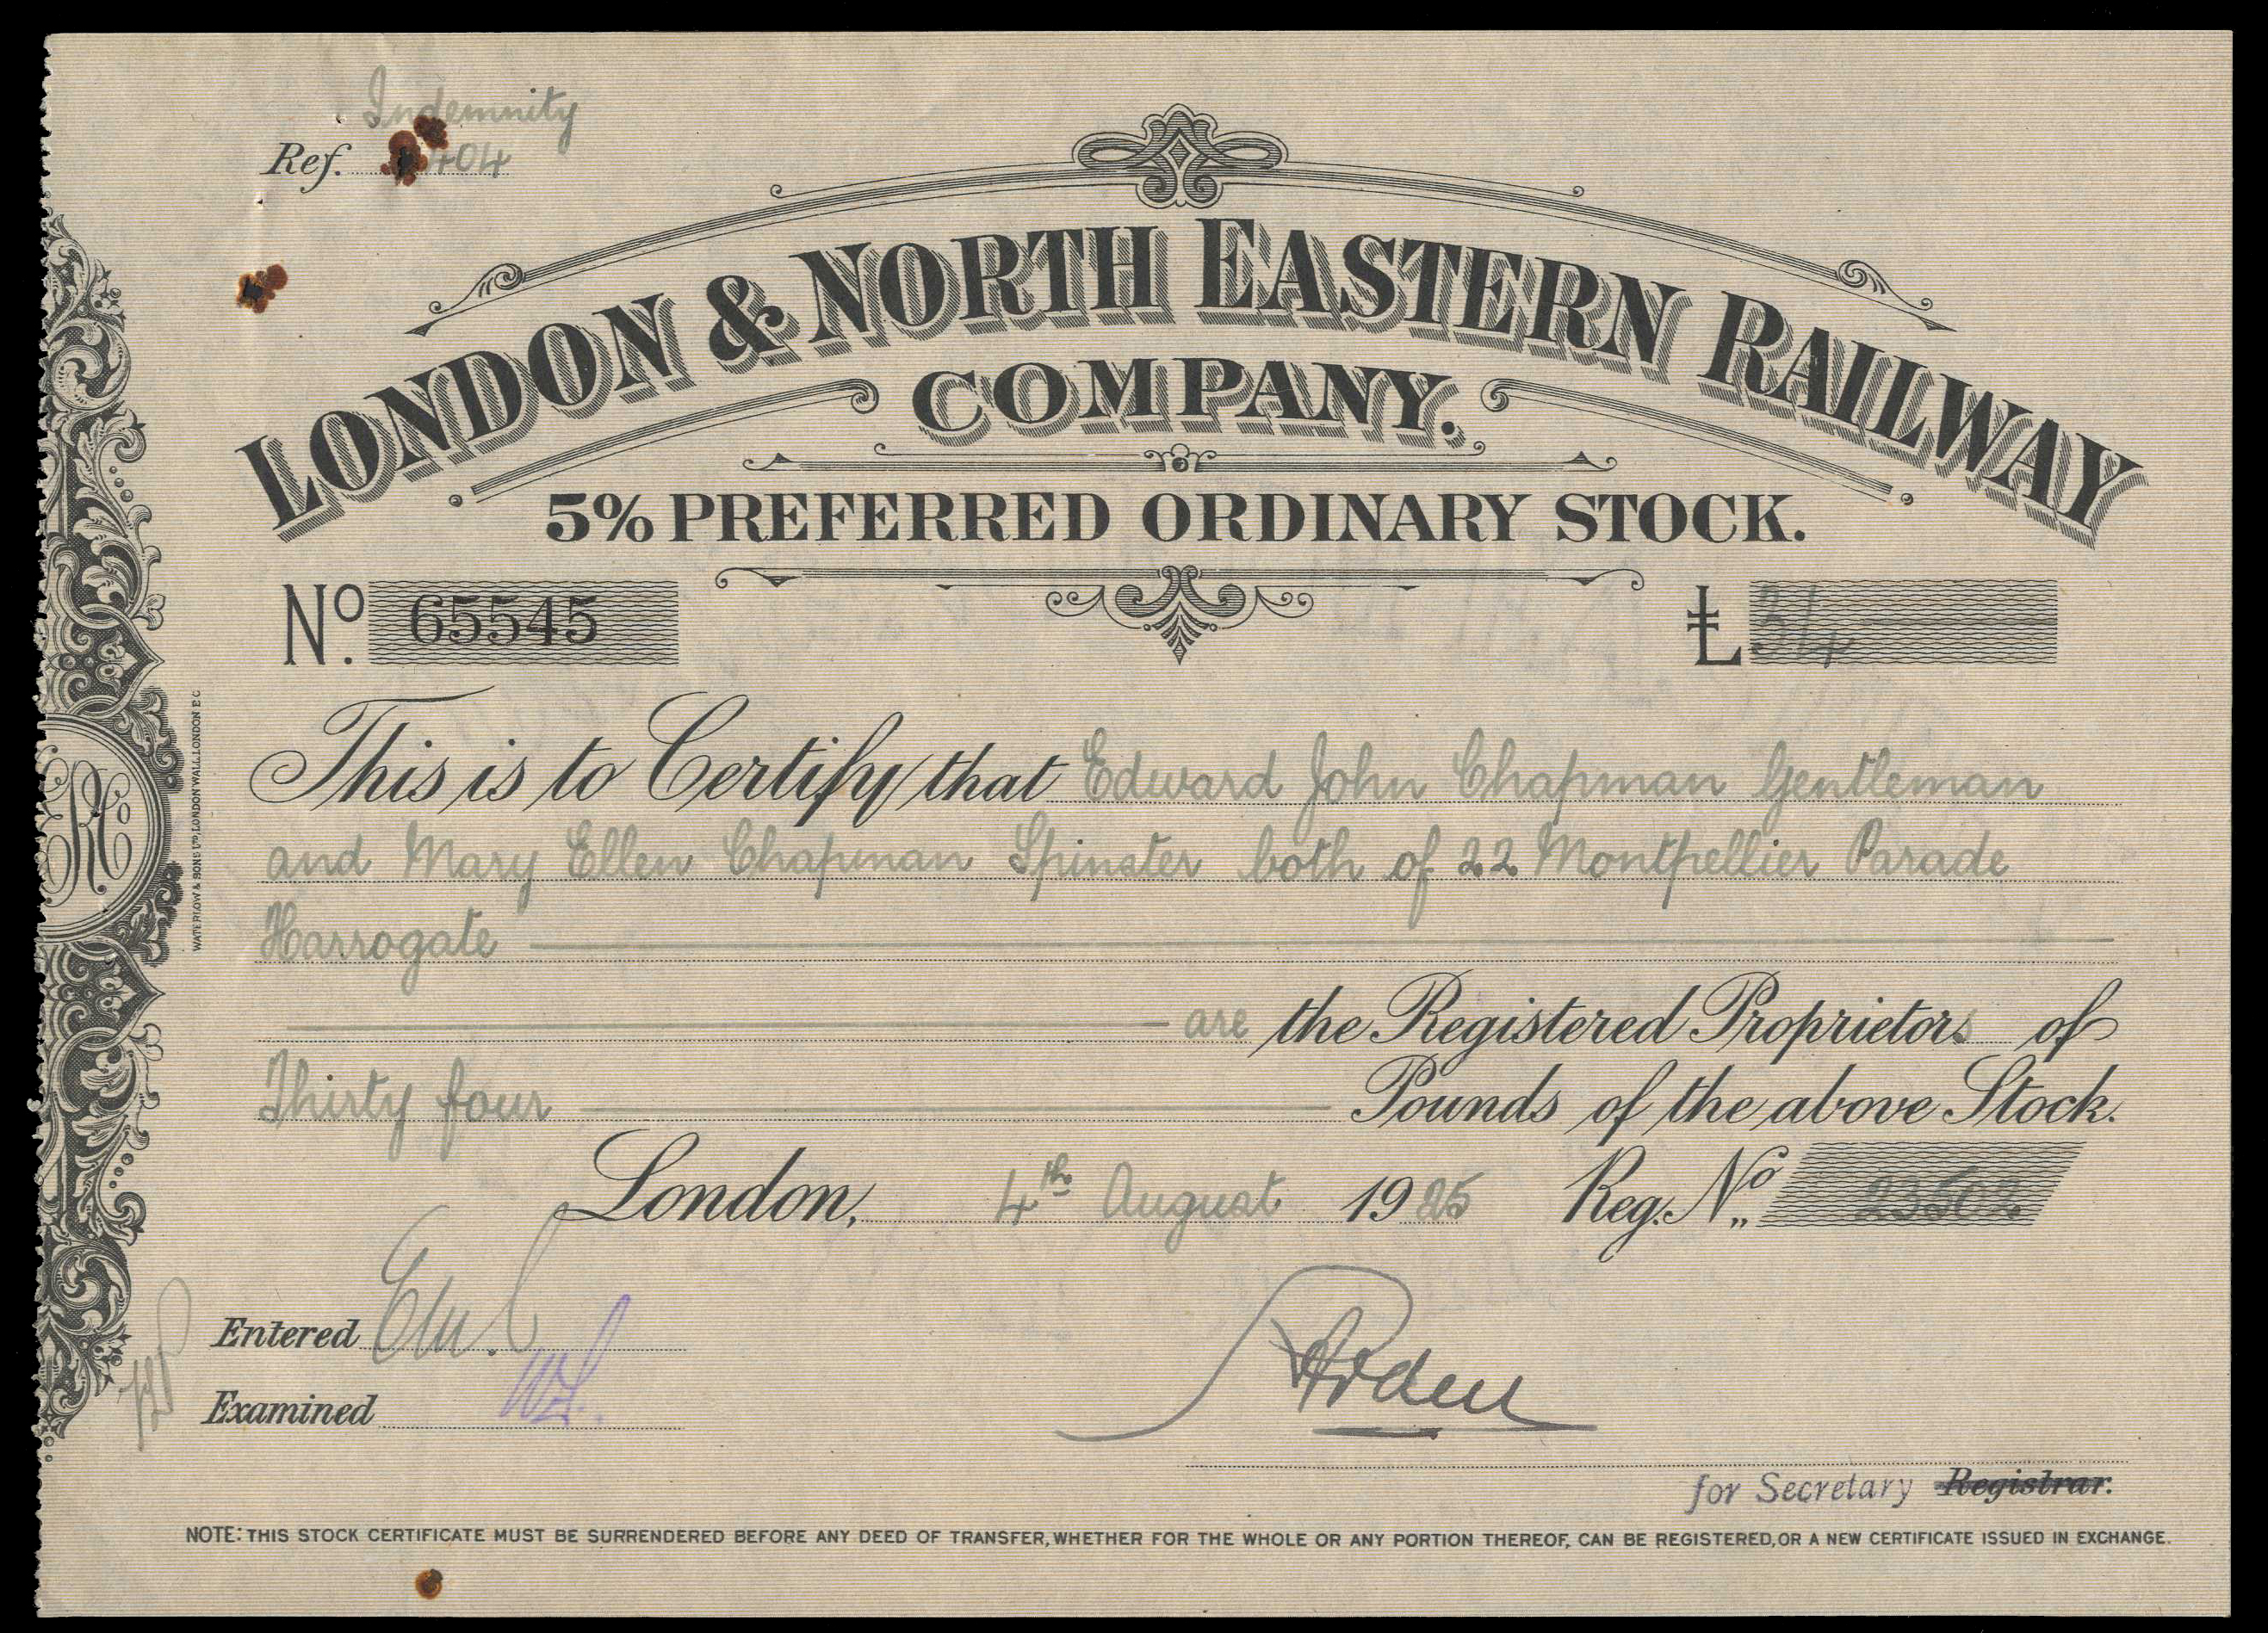 Indemnity
Ref. 404
LONDON & NORTH EASTERN RAILWAY
COMPANY.
5% PREFERRED ORDINARY STOCK.
No. 65545 £34
This is to Certify that Edward John Chapman Gentleman
and Mary Ellen Chapman Spinster both of 22 Montpellier Parade
Harrogate
are the Registered Proprietors of
Thirty four Pounds of the above Stock.
London, 4th August 1925 Reg. No. 23502
Entered
Examined
for Secretary Registrar.
NOTE: THIS STOCK CERTIFICATE MUST BE SURRENDERED BEFORE ANY DEED OF TRANSFER, WHETHER FOR THE WHOLE OR ANY PORTION THEREOF, CAN BE REGISTERED, OR A NEW CERTIFICATE ISSUED IN EXCHANGE.
WATERLOW & SONS LTD, LONDON WALL, LONDON E.C.